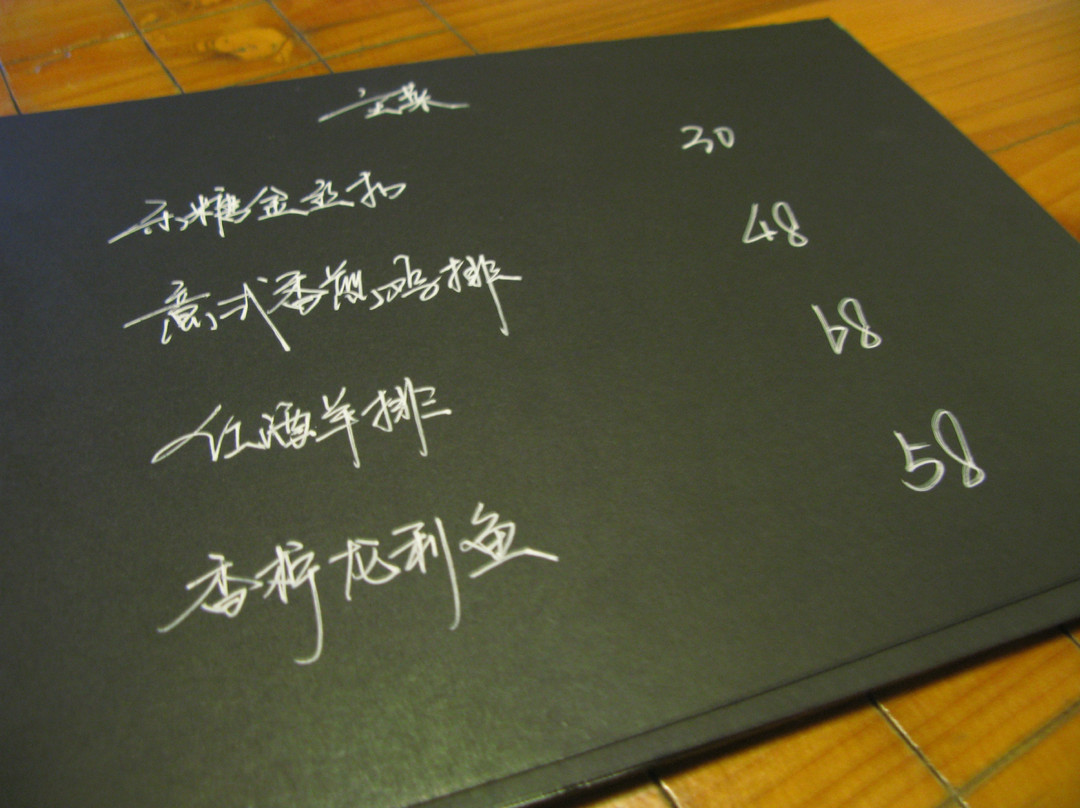 主菜
乐糖金豆扣 30
意式香煎鸡排 48
红酒羊排 68
香柠龙利鱼 58